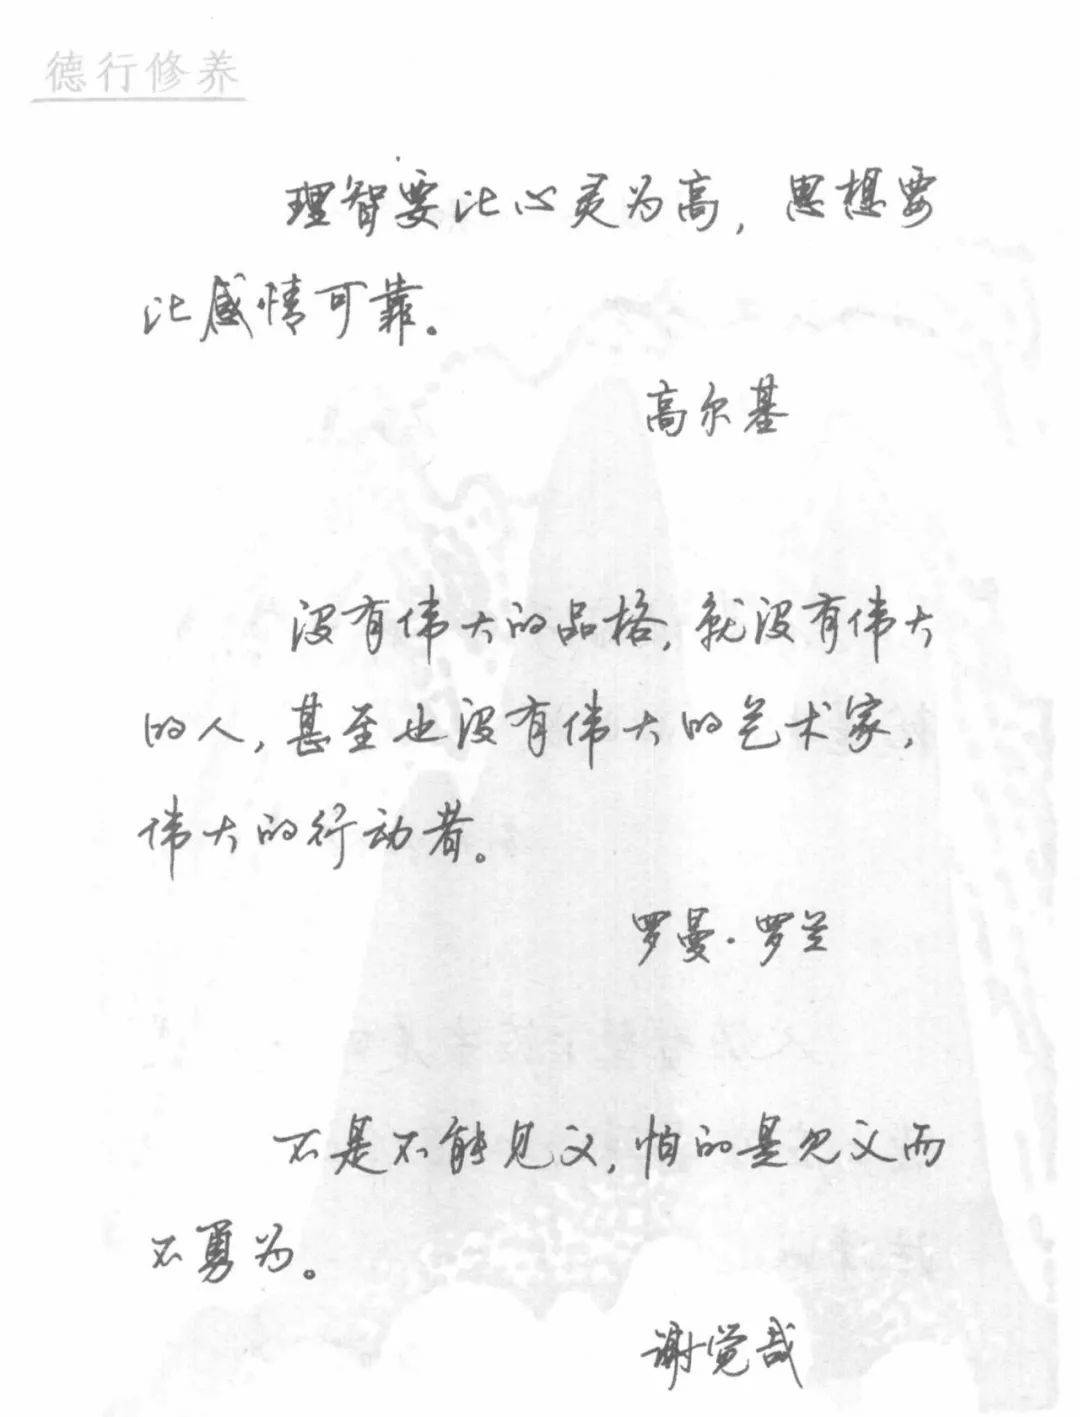 德行修养
理智要比心灵为高，思想要
比感情可靠。
高尔基
没有伟大的品格，就没有伟大
的人，甚至也没有伟大的艺术家，
伟大的行动者。
罗曼·罗兰
不是不能见义，怕的是见义而
不勇为。
谢觉哉